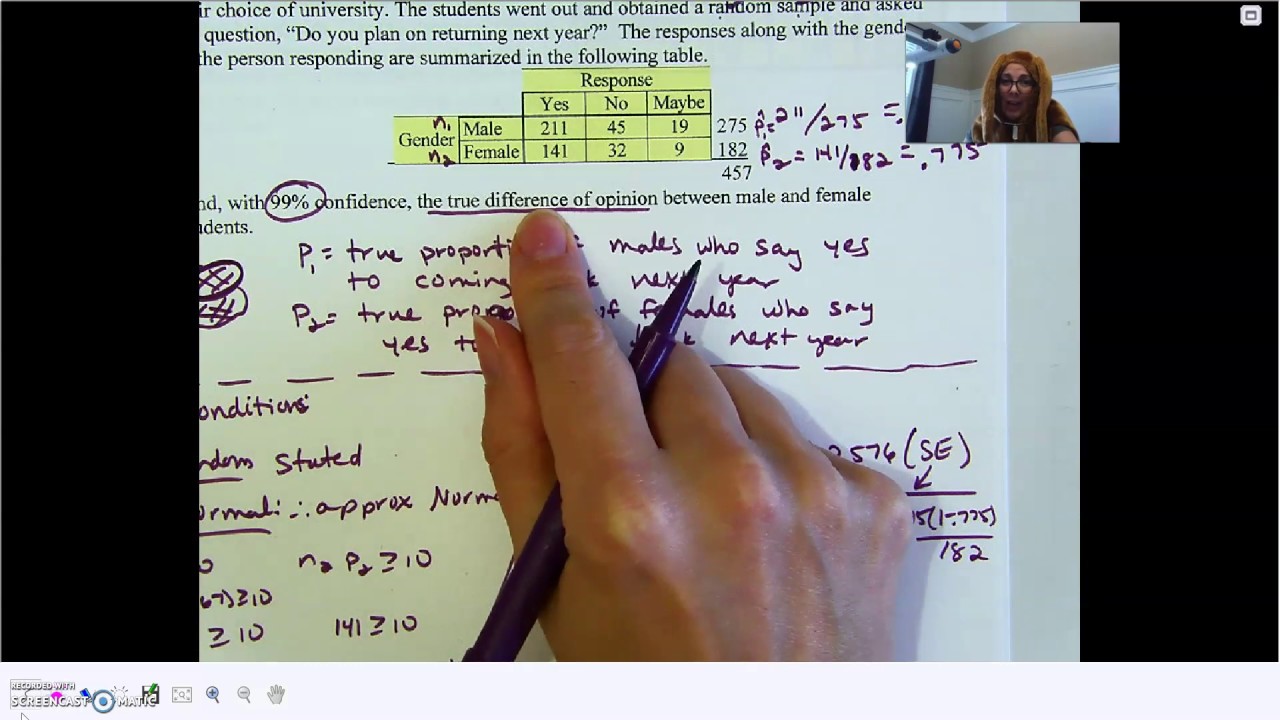 ir choice of university. The students went out and obtained a random sample and asked
question, “Do you plan on returning next year?” The responses along with the gende
the person responding are summarized in the following table.
Response
Yes No Maybe
Gender n₁ Male 211 45 19 275 p̂₁= 211/275 =.
n₂ Female 141 32 9 182 p̂₂ = 141/182 = .775
457
nd, with 99% confidence, the true difference of opinion between male and female
udents.
P₁ = true proporti males who say yes
to coming k next year
P₂ = true of females who say
yes to k next year
onditions
ndom Stated
ormal: ∴ approx Norma
n₂ P₂ ≥ 10
≥10
≥ 10 141 ≥ 10
.576 (SE)
(1-.775)
182
RECORDED WITH
SCREENCAST MATIC